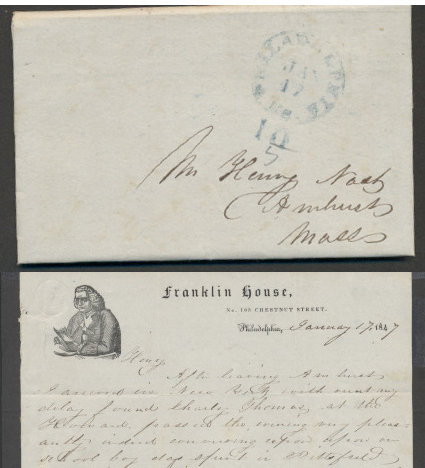 PHILADELPHIA Pa.
JAN
17
10
5
Mr Henry Nash
Amherst
Mass
Franklin House,
No. 105 CHESTNUT STREET.
Philadelphia, January 17, 1847
Henry
After leaving Amherst
I arrived in New York without any
delay found Charly Thomas at the
Howard, passed the evening very pleas-
antly indeed conversing upon
school boy days spent in Pittsfield